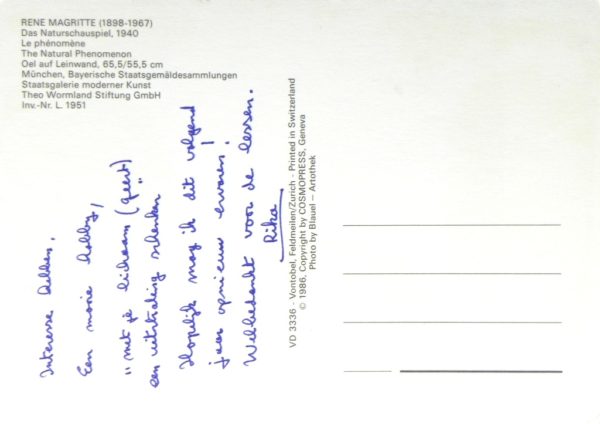 RENE MAGRITTE (1898-1967)
Das Naturschauspiel, 1940
Le phénomène
The Natural Phenomenon
Oel auf Leinwand, 65,5/55,5 cm
München, Bayerische Staatsgemäldesammlungen
Staatsgalerie moderner Kunst
Theo Wormland Stiftung GmbH
Inv.-Nr. L. 1951
Interesse hebben,
Een mooie hobby,
"met je lichaam (geest)
een uitstraling schenken"
Hopelijk mag ik dit volgend
jaar opnieuw ervaren!
Welbedankt voor de lessen.
Rika
VD 3336 - Vontobel, Feldmeilen/Zurich - Printed in Switzerland
© 1986, Copyright by COSMOPRESS, Geneva
Photo by Blauel – Artothek